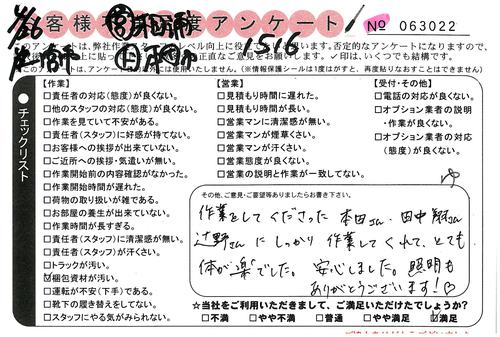 4/26
お客様満足度アンケート
No 063022
1516
このアンケートは、弊社作業スタッフのレベル向上に役立てたいと思います。否定的なアンケートになりますので、
正直なご意見をお願いします。✓印は、いくつでも結構です。
このアンケートは、
以外には使用いたしません。(※情報保護シールは1度がすと、再度貼りなおすことはできません)
チェックリスト
【作業】
□責任者の対応(態度)が良くない。
□他のスタッフの対応(態度)が良くない。
□作業を見ていて不安がある。
□責任者(スタッフ)に好感が持てない。
□お客様への挨拶が出来ていない。
□ご近所への挨拶・気遣いが無い。
□作業開始前の内容確認がなかった。
□作業開始時間が遅れた。
□荷物の取り扱いが雑である。
□お部屋の養生が出来ていない。
□作業時間が長すぎる。
□責任者(スタッフ)に清潔感が無い。
□責任者(スタッフ)が汗くさい。
□トラックが汚い。
☑梱包資材が汚い。
□運転が不安(下手)である。
□靴下の履き替えをしてない。
□スタッフにやる気がみられない。
【営業】
□見積もり時間に遅れた。
□見積もり時間が長い。
□営業マンに清潔感が無い。
□営業マンが煙草くさい。
□営業マンが汗くさい。
□営業態度が良くない。
□営業の説明と作業が一致してない。
【受付・その他】
□電話の対応が良くない。
□オプション業者の説明
・作業が良くない。
□オプション業者の対応
(態度)が良くない。
その他、ご意見・ご要望等ありましたらお書き下さい。
作業をしてくださった 本田さん、田中翔さん
辻野さん にしっかり 作業してくれて、とても
体が楽でした。 安心しました。 照明も
ありがとうございます!♡
☆当社をご利用いただきまして、ご満足いただけたでしょうか?
□不満 □やや不満 □普通 □やや満足 ☑満足